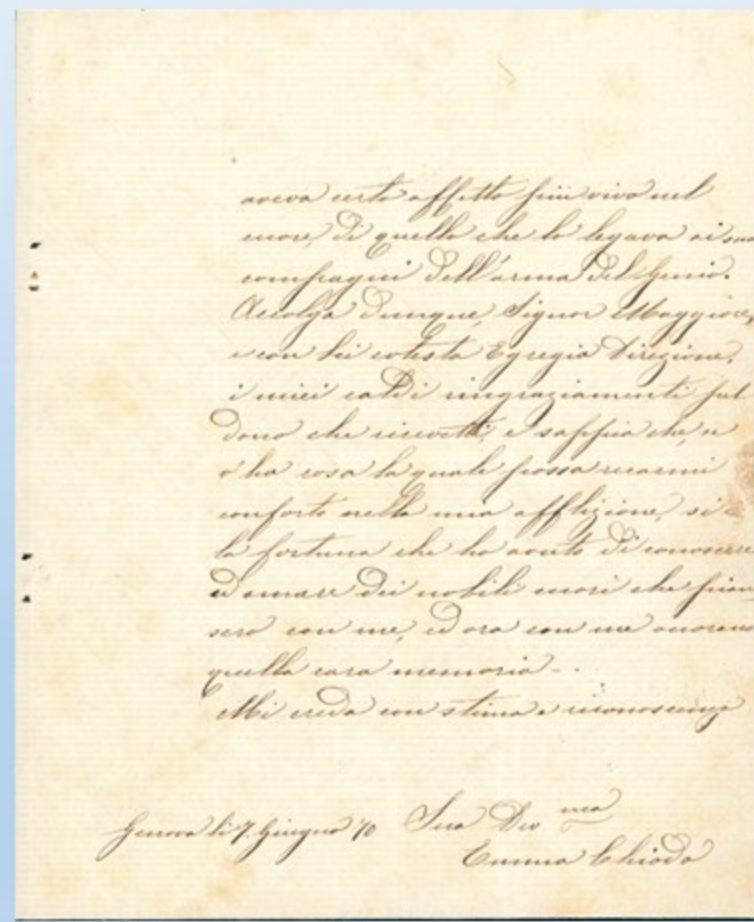 aveva certo affetto più vivo nel
cuore, di quello che lo legava ai suoi
compagni dell'arma del Genio.
Accolga dunque, Signor Maggiore,
e con lei cotesta Egregia Direzione,
i miei caldi ringraziamenti pel
dono che ricevetti, e sappia che, se
v'ha cosa la quale possa recarmi
conforto nella mia afflizione, si è
la fortuna che ho avuto di conoscere
ed amare dei nobili cuori che pian-
sero con me, ed ora con me onorano
quella cara memoria - . .
Mi creda con stima e riconoscenza
Genova li 7. Giugno 70 Sua Dev ma
Emma Chiodo